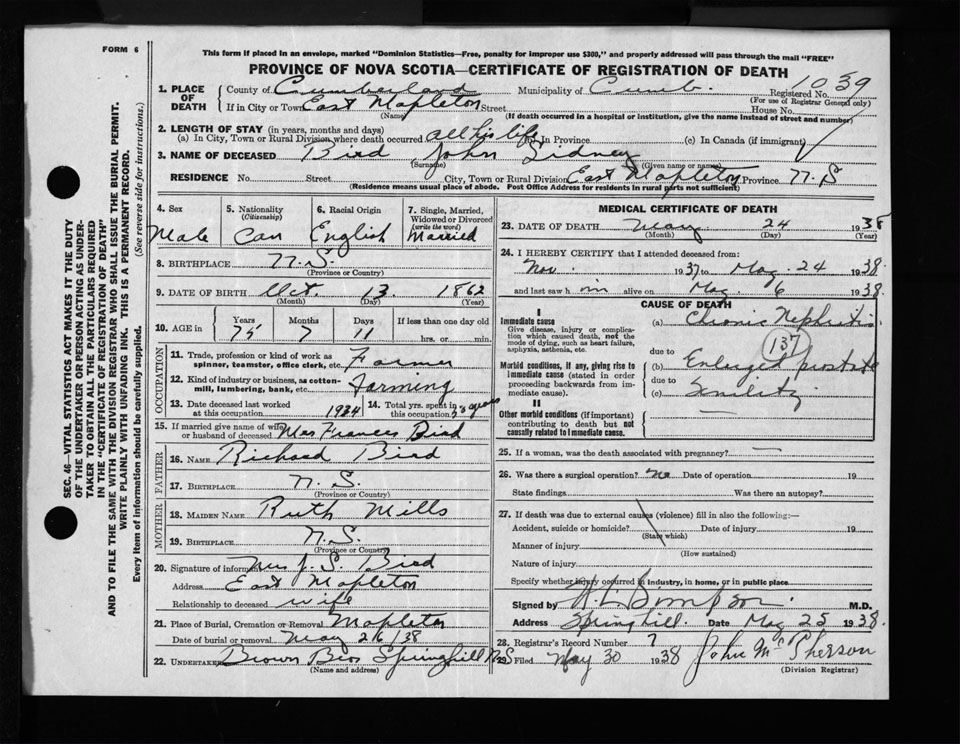 FORM 6
This form if placed in an envelope, marked "Dominion Statistics—Free, penalty for improper use $300," and properly addressed will pass through the mail "FREE"
PROVINCE OF NOVA SCOTIA—CERTIFICATE OF REGISTRATION OF DEATH
SEC. 46—VITAL STATISTICS ACT MAKES IT THE DUTY
OF THE UNDERTAKER OR PERSON ACTING AS UNDER-
TAKER TO OBTAIN ALL THE PARTICULARS REQUIRED
IN THE "CERTIFICATE OF REGISTRATION OF DEATH"
AND TO FILE THE SAME WITH THE DIVISION REGISTRAR WHO SHALL ISSUE THE BURIAL PERMIT.
WRITE PLAINLY WITH UNFADING INK. THIS IS A PERMANENT RECORD.
Every item of information should be carefully supplied. (See reverse side for instructions.)
1. PLACE OF DEATH
County of Cumberland Municipality of Cumb. Registered No. 1039
(For use of Registrar General only)
If in City or Town East Mapleton Street House No.
(Name) (If death occurred in a hospital or institution, give the name instead of street and number)
2. LENGTH OF STAY (in years, months and days)
(a) In City, Town or Rural Division where death occurred all his life (b) In Province (c) In Canada (if immigrant)
3. NAME OF DECEASED Bird John Sidney
(Surname) (Given name or name)
RESIDENCE No. Street City, Town or Rural Division East Mapleton Province N. S
(Residence means usual place of abode. Post Office Address for residents in rural parts not sufficient)
4. Sex 5. Nationality (Citizenship) 6. Racial Origin 7. Single, Married, Widowed or Divorced (write the word)
Male Can English Married
8. BIRTHPLACE N. S.
(Province or Country)
9. DATE OF BIRTH Oct. 13. 1862
(Month) (Day) (Year)
10. AGE in Years Months Days If less than one day old
75 7 11 hrs. or min.
OCCUPATION
11. Trade, profession or kind of work as spinner, teamster, office clerk, etc. Farmer
12. Kind of industry or business, as cotton-mill, lumbering, bank, etc. Farming
13. Date deceased last worked at this occupation 1934 14. Total yrs. spent in this occupation 53 years
15. If married give name of wife or husband of deceased Mrs Frances Bird
FATHER
16. NAME Richard Bird
17. BIRTHPLACE N. S.
(Province or Country)
MOTHER
18. MAIDEN NAME Ruth Mills
19. BIRTHPLACE N. S.
(Province or Country)
20. Signature of informant Mrs J. S. Bird
Address East Mapleton
Relationship to deceased wife
21. Place of Burial, Cremation or Removal Mapleton
Date of burial or removal May 26/38
22. UNDERTAKER Brown Bros Springhill N.S
(Name and address)
MEDICAL CERTIFICATE OF DEATH
23. DATE OF DEATH May 24 1938
(Month) (Day) (Year)
24. I HEREBY CERTIFY that I attended deceased from:
Nov. 1937 to May 24 1938.
and last saw him alive on May 6 1938.
CAUSE OF DEATH
I
Immediate cause
Give disease, injury or complication which caused death, not the mode of dying, such as heart failure, asphyxia, asthenia, etc.
(a) Chronic Nephritis
137
due to
Morbid conditions, if any, giving rise to Immediate cause (stated in order proceeding backwards from immediate cause).
(b) Enlarged prostate
due to
(c) Senility
II
Other morbid conditions (if important) contributing to death but not causally related to Immediate cause.
25. If a woman, was the death associated with pregnancy? —
26. Was there a surgical operation? no Date of operation 19
State findings Was there an autopsy?
27. If death was due to external causes (violence) fill in also the following:—
Accident, suicide or homicide? Date of injury 19
(State which)
Manner of injury
(How sustained)
Nature of injury
Specify whether injury occurred in industry, in home, or in public place
Signed by H. L. Simpson M.D.
Address Springhill. Date May 25 1938.
28. Registrar's Record Number 7
29. Filed May 30 1938 John McPherson
(Division Registrar)